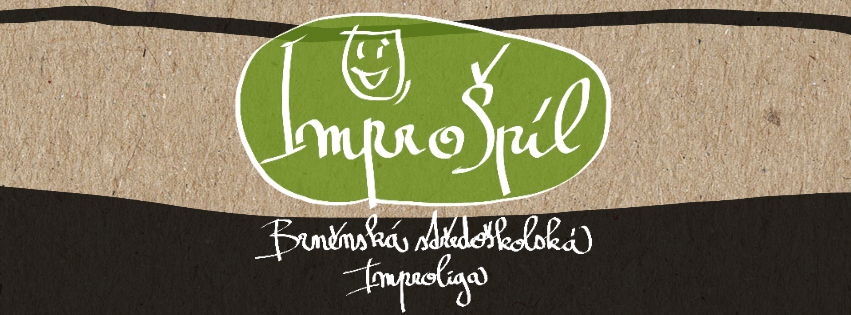 ImproŠpíl
Brněnská středoškolská
Improliga